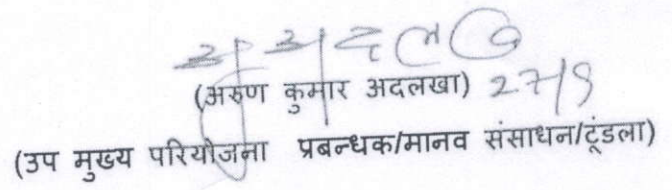 (अरुण कुमार अदलखा) 27/9
(उप मुख्य परियोजना प्रबन्धक/मानव संसाधन/टूंडला)